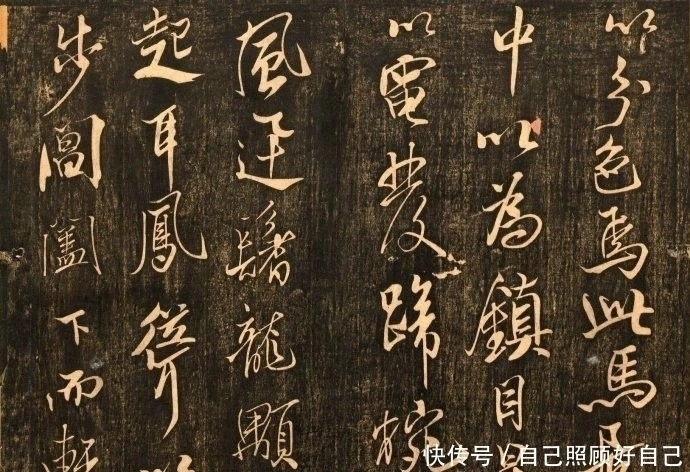 以分色焉此馬
中以為鎮目
以電發蹄
風迅鬐龍顒
起耳鳳聳
步閶闔下而
快传号/自己照顾好自己